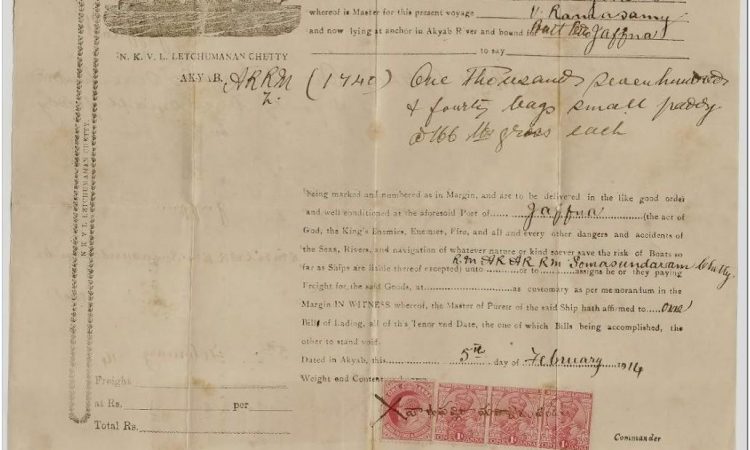 whereof is Master for this present voyage V. Ramasamy
and now lying at anchor in Akyab River and bound for Jaffna
to say
N. K. V. L. LETCHUMANAN CHETTY
AKYAB,
ARRM
(1740) One thousand seven hundred
& fourty bags small paddy
@ 166 lbs gross each
N K V L LETCHUMANAN CHETTY.
being marked and numbered as in Margin, and are to be delivered in the like good order
and well conditioned at the aforesaid Port of Jaffna (the act of
God, the King's Enemies, Enemies, Fire, and all and every other dangers and accidents of
the Seas, Rivers, and navigation of whatever nature or kind soever save the risk of Boats so
far as Ships are liable thereof excepted) unto R.M AR AR RM Somasundaram Chetty
or to assigns he or they paying
Freight for the said Goods, at as customary as per memorandum in the
Margin IN WITNESS whereof, the Master of Purest of the said Ship hath affirmed to one
Bills of Lading, all of this Tenor and Date, the one of which Bills being accomplished, the
other to stand void.
Dated in Akyab, this 5th day of February 1914
Weight and Content
Freight
at Rs. per
Total Rs.
Commander